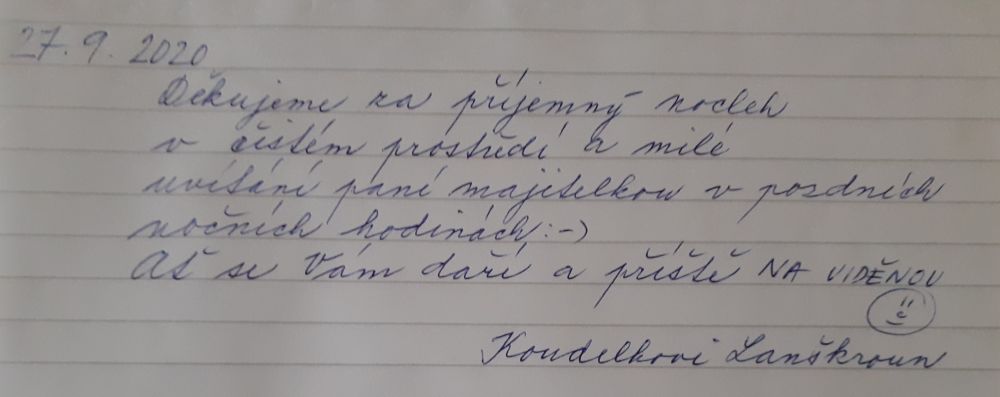 27. 9. 2020
Děkujeme za příjemný nocleh
v čistém prostředí a milé
uvítání paní majitelkou v pozdních
nočních hodinách :-)
Ať se Vám daří a příště NA VIDĚNOU
Koudelkovi Lanškroun